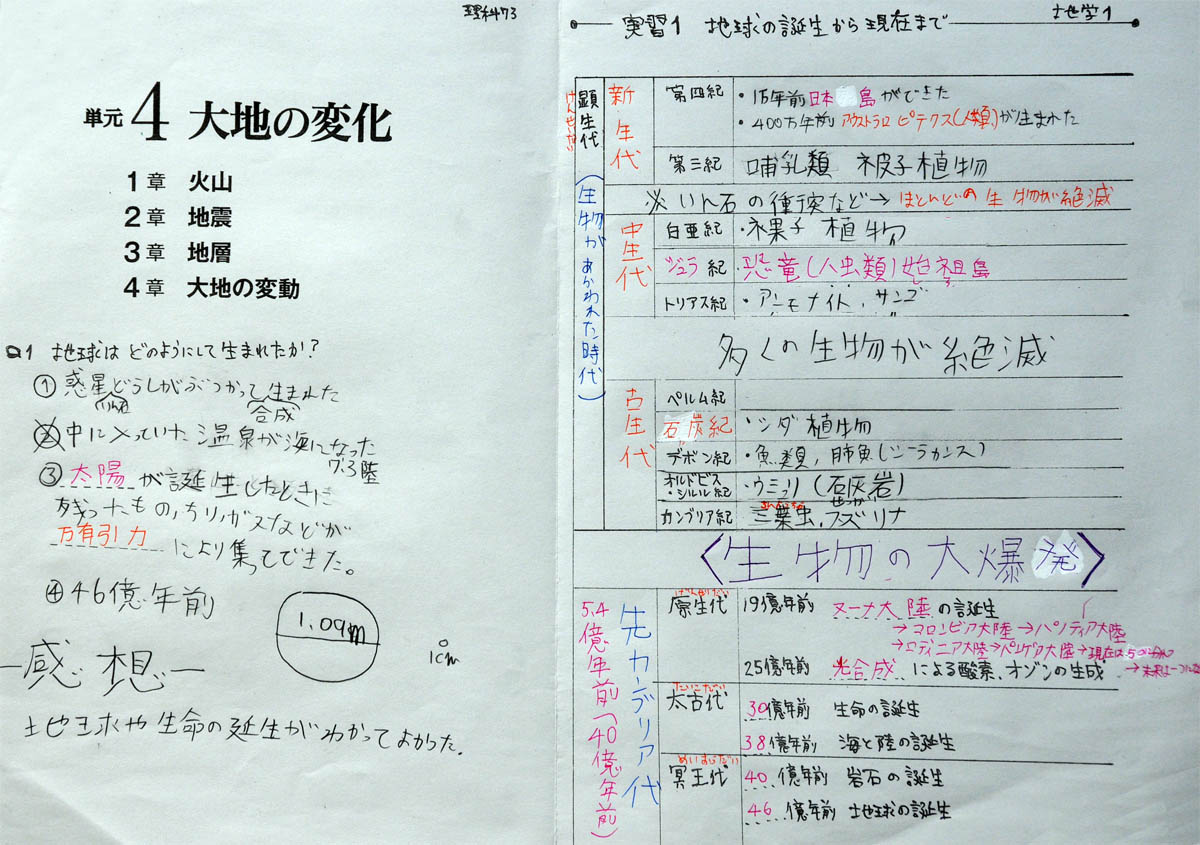 理科73
単元4 大地の変化
1章 火山
2章 地震
3章 地層
4章 大地の変動
Q1 地球はどのようにして生まれたか?
① 惑星どうしがぶつかって生まれた
合成
② 中に入っていた温泉が海になった
7:3陸
③ 太陽が誕生したときに
残ったもの,ちり,ガスなどが
万有引力により集ってできた。
④ 46億年前
1.09m
1cm
ー感想ー
地球や生命の延生がわかってよかった.
地学1
実習1 地球の誕生から現在まで
顕生代
けんせいだい
(生物があらわれた時代)
新生代
第四紀
・1万年前日本 島ができた
・400万年前 アウストラロピテクス(人類)が生まれた
第三紀 哺乳類 被子植物
※いん石の衝突など→ほとんどの生物が絶滅
中生代
白亜紀 ・裸子植物
ジュラ紀 ・恐竜(ハ虫類)始祖鳥
トリアス紀 ・アンモナイト、サンゴ
多くの生物が絶滅
古生代
ペルム紀
石炭紀 ・シダ植物
デボン紀 ・魚類,肺魚(シーラカンス)
オルドビス・シルル紀 ・ウミユリ(石灰岩)
せっかい
カンブリア紀 三葉虫,フズリナ
〈生物の大爆発〉
5.4億年前(40億年前)
先カンブリア代
原生代
げんせいだい
19億年前 ヌーナ大陸の誕生
→コロンビア大陸→パノティア大陸
→ロディニア大陸→パンゲア大陸→現在は5つに分かれ
25億年前 光合成による酸素、オゾンの生成
→未来は一つに
太古代
たいこだい
30億年前 生命の誕生
38億年前 海と陸の誕生
冥王代
めいおうだい
40億年前 岩石の誕生
46億年前 地球の誕生